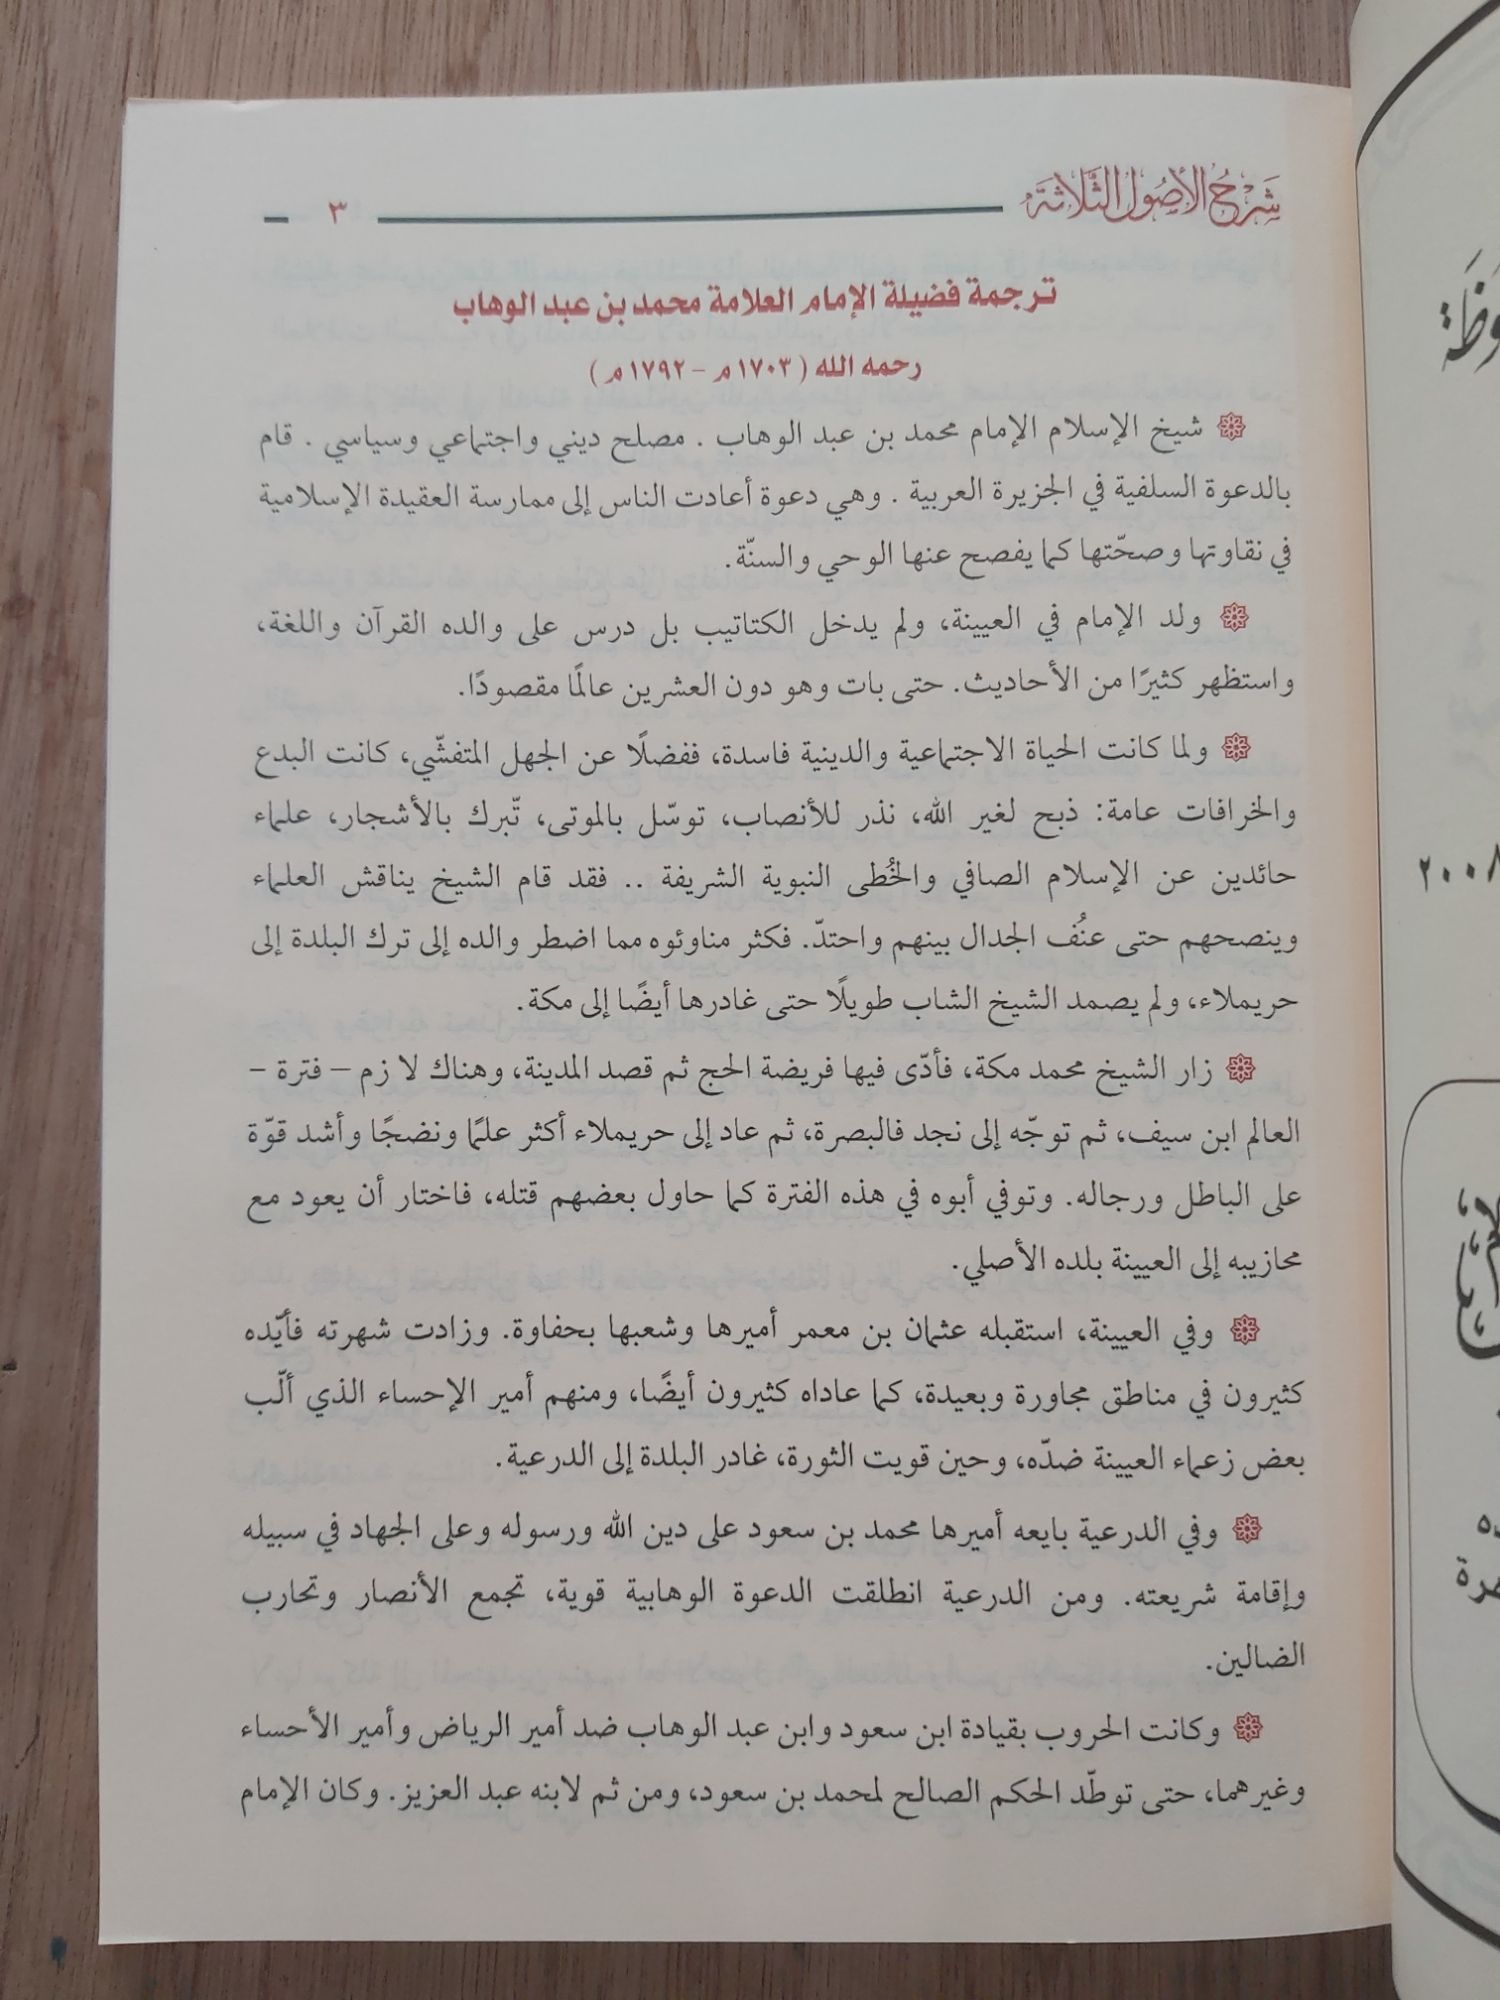 شَرْحُ الأُصُولِ الثَّلَاثَةِ
٣
ترجمة فضيلة الإمام العلامة محمد بن عبد الوهاب
رحمه الله (١٧٠٣م - ١٧٩٢م)
شيخ الإسلام الإمام محمد بن عبد الوهاب . مصلح ديني واجتماعي وسياسي . قام
بالدعوة السلفية في الجزيرة العربية . وهي دعوة أعادت الناس إلى ممارسة العقيدة الإسلامية
في نقاوتها وصحّتها كما يفصح عنها الوحي والسنّة.
ولد الإمام في العيينة، ولم يدخل الكتاتيب بل درس على والده القرآن واللغة،
واستظهر كثيرًا من الأحاديث. حتى بات وهو دون العشرين عالمًا مقصودًا.
ولما كانت الحياة الاجتماعية والدينية فاسدة، ففضلًا عن الجهل المتفشّي، كانت البدع
والخرافات عامة: ذبح لغير الله، نذر للأنصاب، توسّل بالموتى، تّبرك بالأشجار، علماء
حائدين عن الإسلام الصافي والخُطى النبوية الشريفة .. فقد قام الشيخ يناقش العلماء
وينصحهم حتى عنُف الجدال بينهم واحتدّ. فكثر مناوئوه مما اضطر والده إلى ترك البلدة إلى
حريملاء، ولم يصمد الشيخ الشاب طويلًا حتى غادرها أيضًا إلى مكة.
زار الشيخ محمد مكة، فأدّى فيها فريضة الحج ثم قصد المدينة، وهناك لا زم – فترة –
العالم ابن سيف، ثم توجّه إلى نجد فالبصرة، ثم عاد إلى حريملاء أكثر علمًا ونضجًا وأشد قوّة
على الباطل ورجاله. وتوفي أبوه في هذه الفترة كما حاول بعضهم قتله، فاختار أن يعود مع
محازبيه إلى العيينة بلده الأصلي.
وفي العيينة، استقبله عثمان بن معمر أميرها وشعبها بحفاوة. وزادت شهرته فأيّده
كثيرون في مناطق مجاورة وبعيدة، كما عاداه كثيرون أيضًا، ومنهم أمير الإحساء الذي ألّب
بعض زعماء العيينة ضدّه، وحين قويت الثورة، غادر البلدة إلى الدرعية.
وفي الدرعية بايعه أميرها محمد بن سعود على دين الله ورسوله وعلى الجهاد في سبيله
وإقامة شريعته. ومن الدرعية انطلقت الدعوة الوهابية قوية، تجمع الأنصار وتحارب
الضالين.
وكانت الحروب بقيادة ابن سعود وابن عبد الوهاب ضد أمير الرياض وأمير الأحساء
وغيرهما، حتى توطّد الحكم الصالح لمحمد بن سعود، ومن ثم لابنه عبد العزيز. وكان الإمام
٢٠٠٨